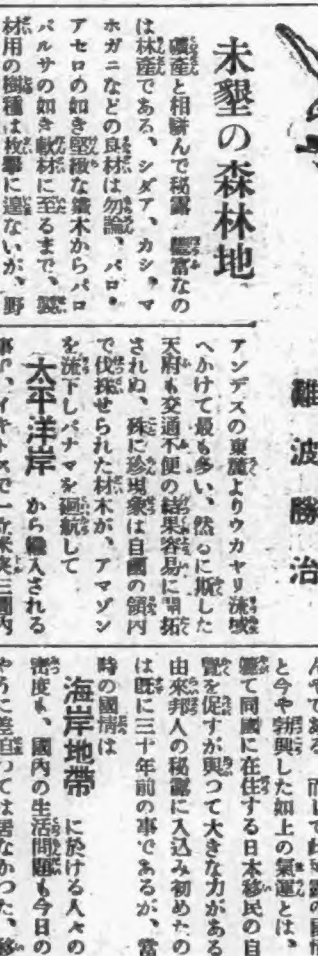 未墾の森林地
礦産と相駢んで秘露 豊富なの
は林産である、シダア、カシ、マ
ホガニなどの良材は勿論、バロ・
アセロの如き堅緻な鐵木からバロ
バルサの如き軟材に至るまで、製
材用の樹種は枚擧に遑ないが、野
難波勝治
アンデスの東麓よりウカヤリ流域
へかけて最も多い、然るに斯した
天府も交通不便の結果容易に開拓
されぬ、殊に珍現象は自國の領内
で伐採せられた材木が、アマゾン
を流下しパナマを廻航して
太平洋岸 から輸入される
と今や勃興した如上の氣運とは、
軈て同國に在住する日本移民の自
覺を促すが與つて大きな力がある
由來邦人の秘露に入込み初めたの
は既に三十年前の事であるが、當
時の國情は
海岸地帶 に於ける人々の
密度も、國內の生活問題も今日の
やうに差迫つては居なかつた、移